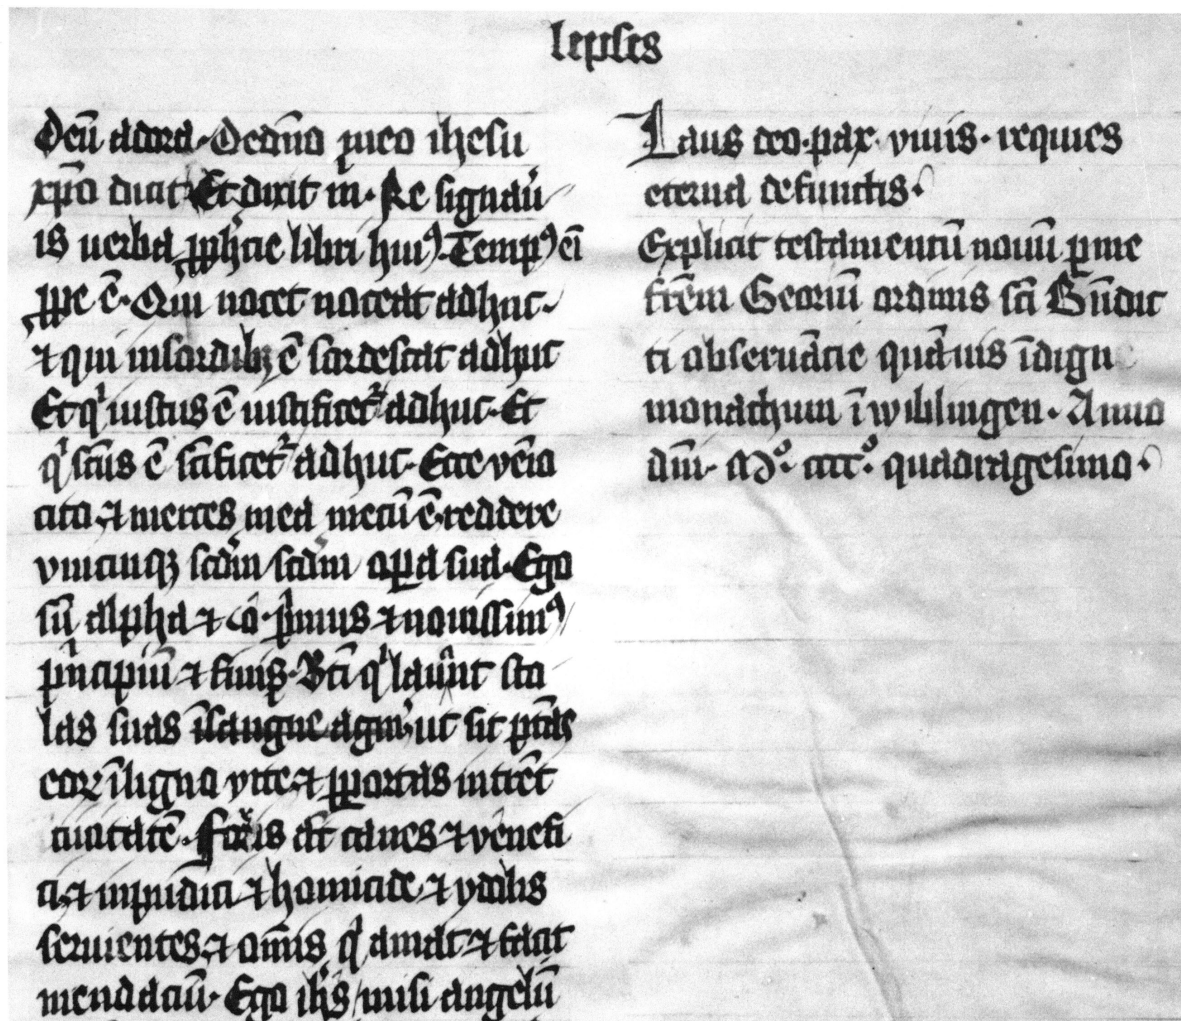 lepsis
Deū adora. De dn̄o meo ihesu
xp̄o dicit Et dixit m̄. Ne signau̅
is uerba ꝓph̄cie libri huiꝰ. Tempꝰ eī
ꝓpe ē. Qui nocet noceat adhuc.
⁊ qui in sordibꝫ ē sordescat adhuc
Et qͥ iustus ē iustificet᷑ adhuc. Et
qͥ scūs ē scīficet᷑ adhuc. Ecce vēio
cito ⁊ merces mea mecū ē reddere
vnicuiqꝫ scdm̄ scdm̄ oꝑa sua. Ego
sū alpha ⁊ ō. pͥmus ⁊ nouissimꝰ
pͥncipiū ⁊ finis. Bt̄i qͥ lauāt sto
las suas ī sangne agni ut sit ptās
eoꝝ ī ligno vite ⁊ ꝑ portas intrēt
ciuitatē. Foris aūt canes ⁊ venefi
ci ⁊ inpudici ⁊ homicide ⁊ ydolis
seruientes ⁊ om̄is qͥ amat ⁊ facit
mendaciū. Ego ih̄s misi angelū
Laus deo. pax viuis. requies
eterna defunctis.
Explicit testamentū nouū ꝑ me
frēm Georiū ordinis scī Bn̄dic
ti obseruācie quāuis īdign
monachum ī wiblingen. Anno
dn̄i. Mº. ccccº. quadragesimo.